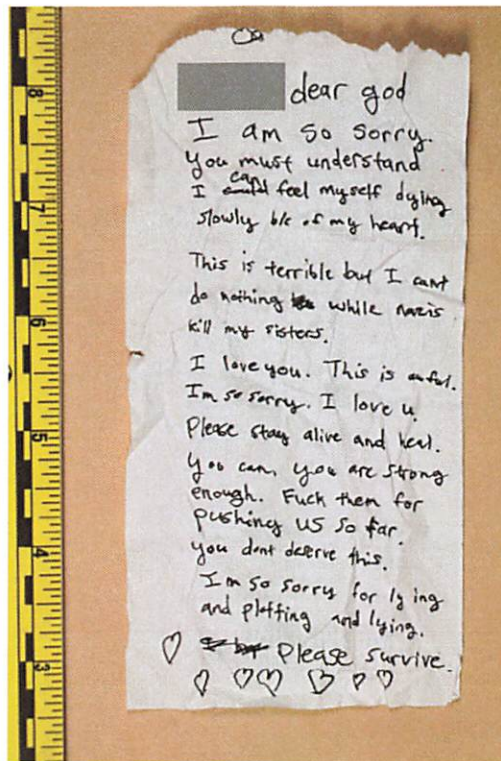 dear god
I am so sorry.
You must understand
I can feel myself dying
slowly b/c of my heart.
This is terrible but I cant
do nothing while nazis
kill my sisters.
I love you. This is awful.
Im so sorry. I love u.
Please stay alive and heal.
You can, you are strong
enough. Fuck them for
pushing US so far.
you dont deserve this.
I'm so sorry for lying
and plotting and lying.
Please survive.
8
7
6
5
4
3